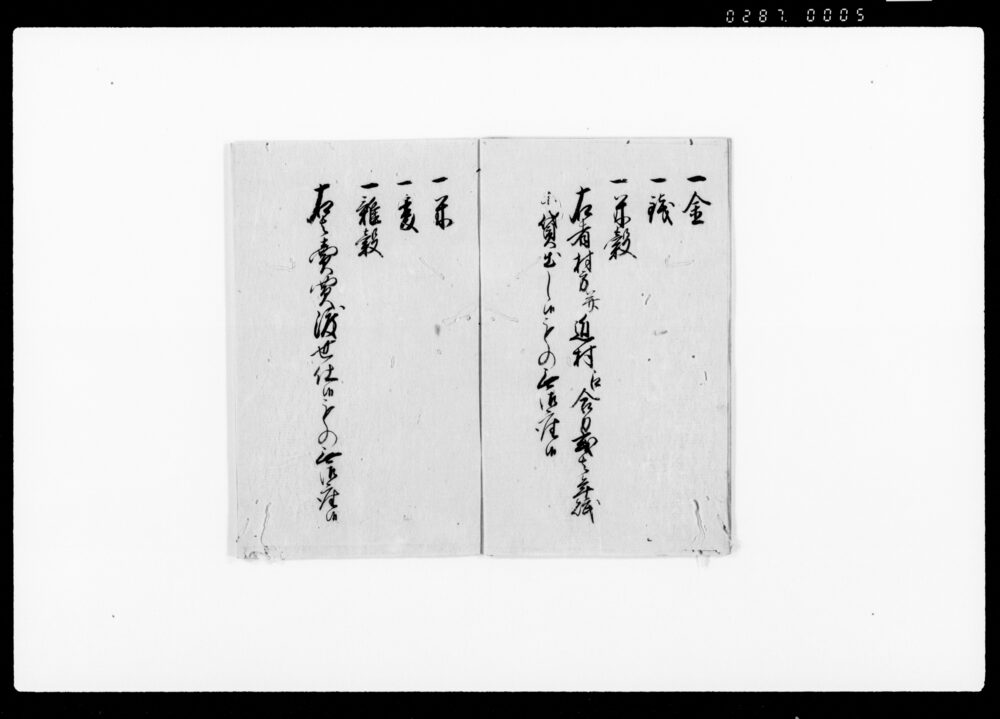 0287. 0005
一金
一銭
一米穀
右者村方并近村江合力或者無祇
ニ而貸出し候もの無御座候
一米
一麦
一雑穀
右之売買渡世仕候もの無御座候